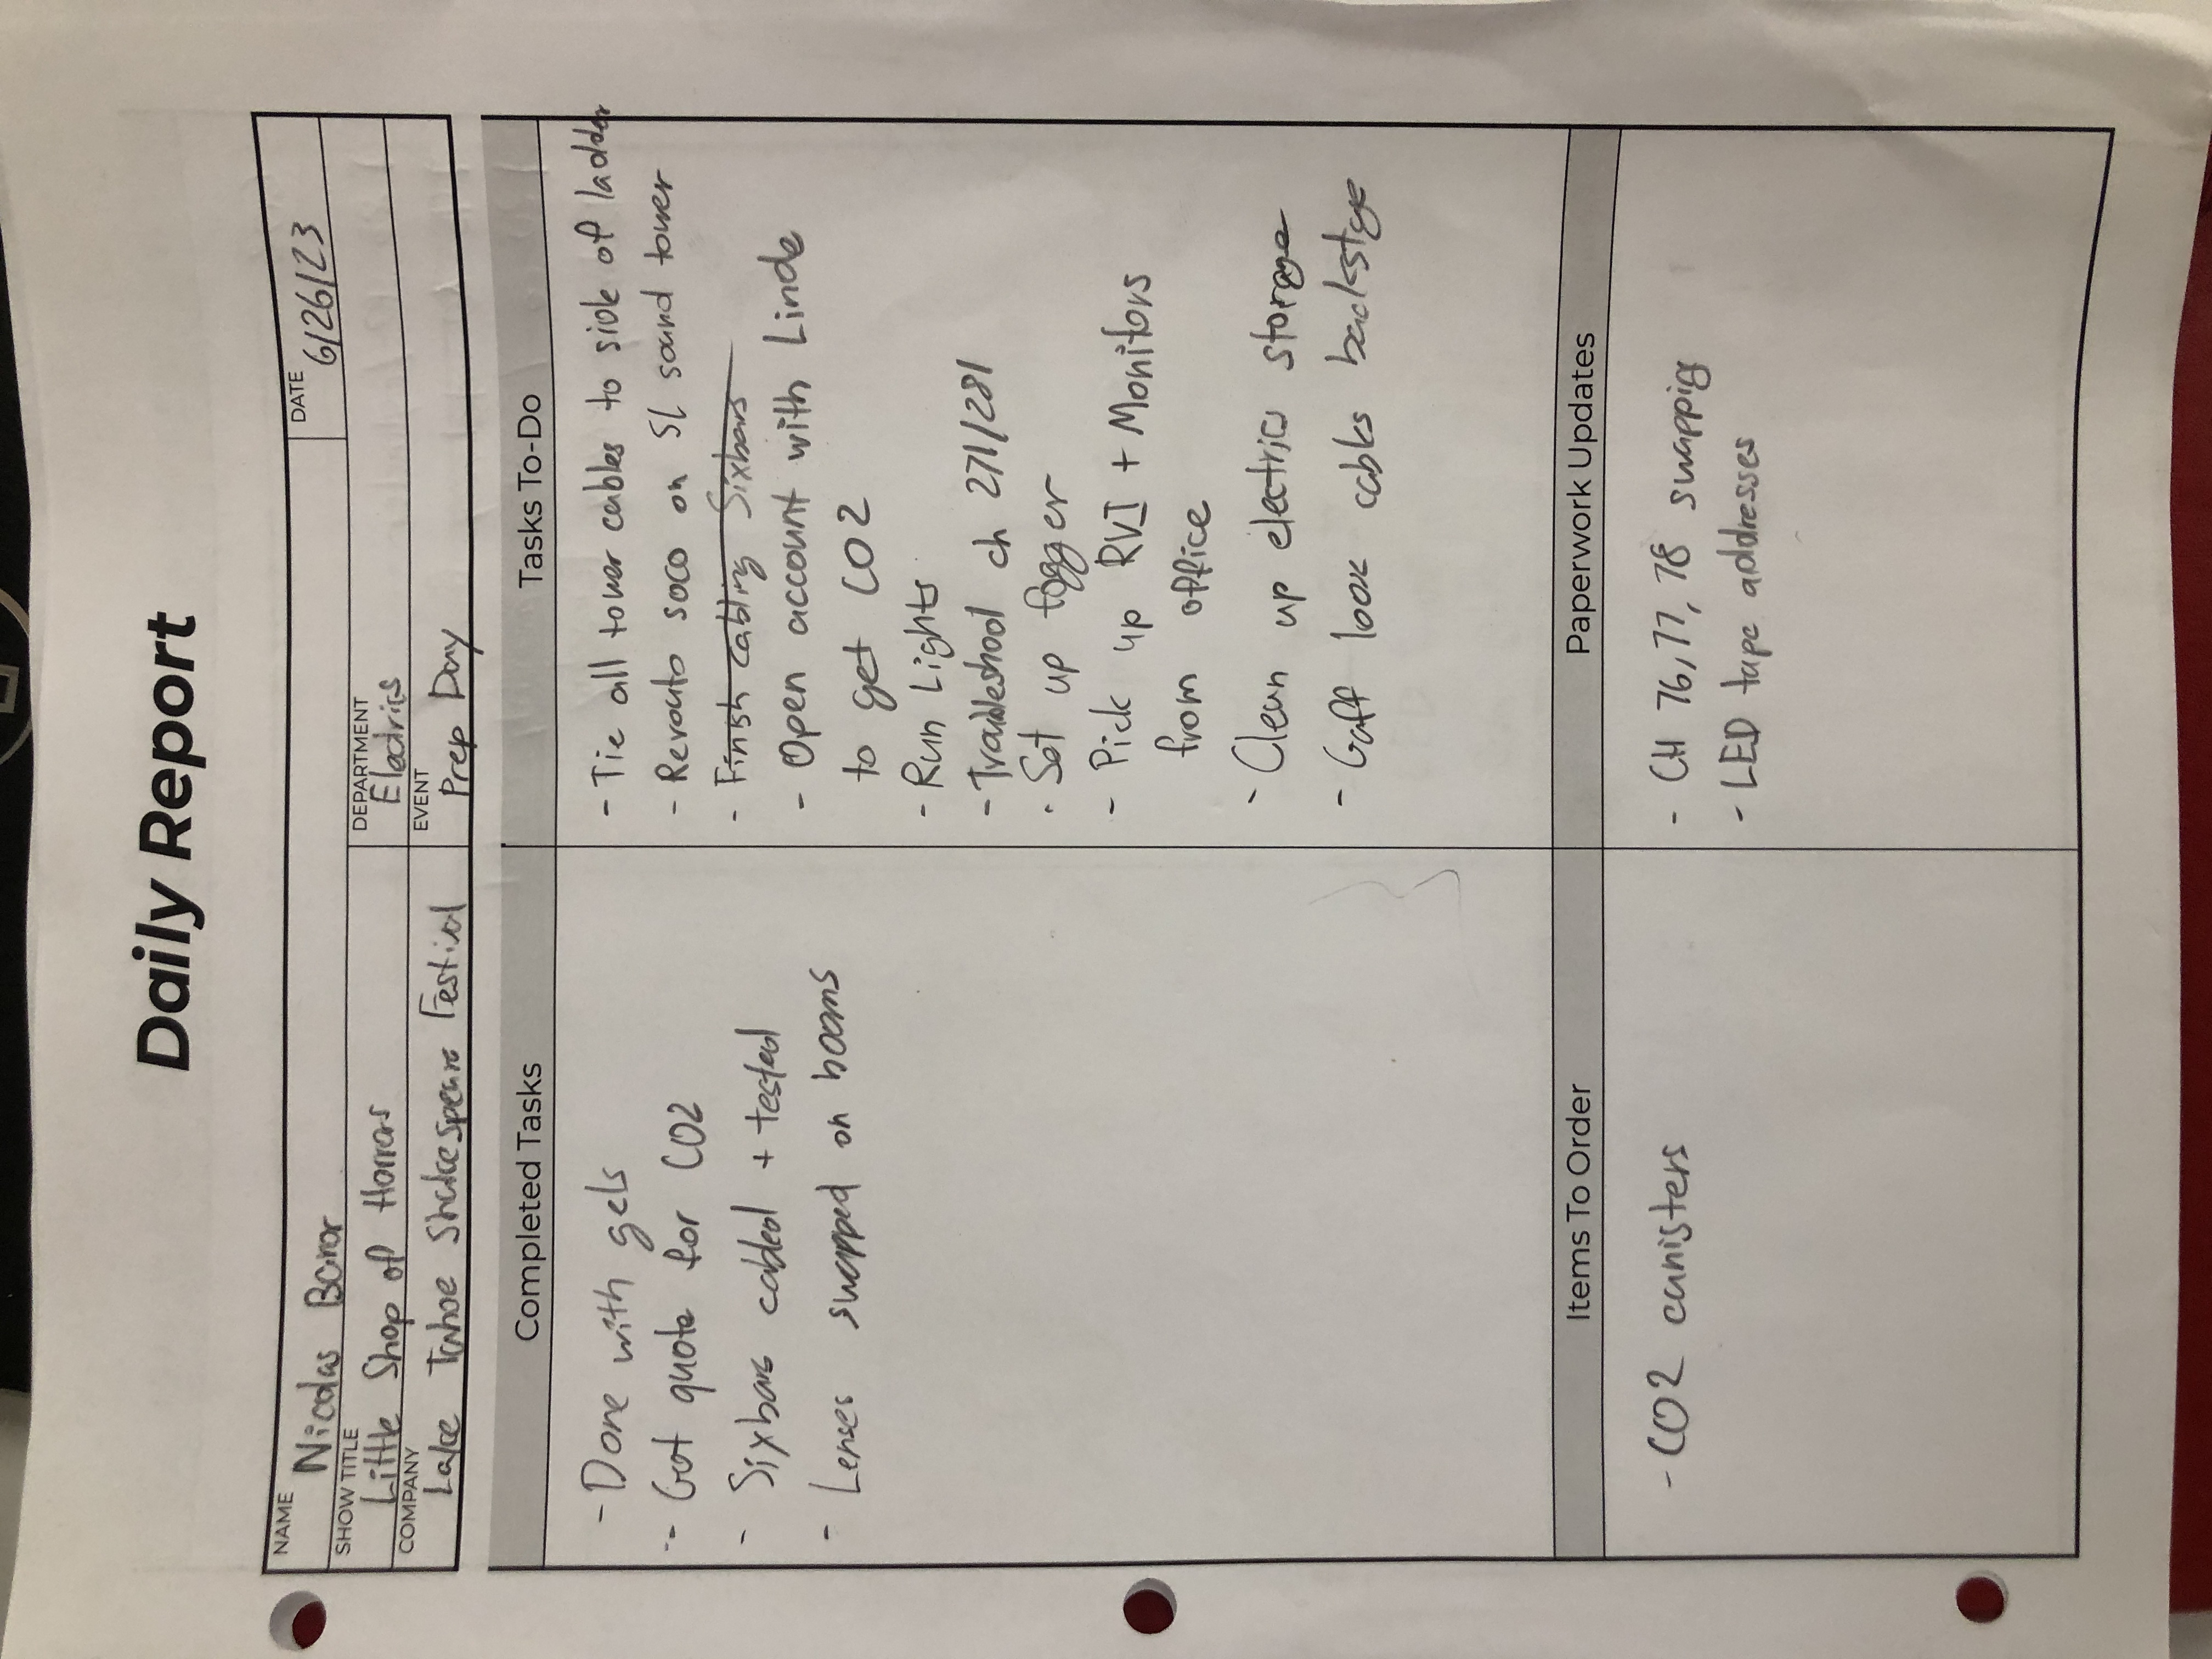 Daily Report
NAME
Nicolas Boror
DATE
6/26/23
SHOW TITLE
Little Shop of Horrors
DEPARTMENT
Electrics
COMPANY
Lake Tahoe Shakespeare Festival
EVENT
Prep Day
Completed Tasks
- Done with gels
- Got quote for CO2
- Sixbars cabled + tested
- Lenses swapped on booms
Tasks To-Do
- Tie all tower cables to side of ladder
- Reroute soco on SL sound tower
- Finish cabling Sixbars
- Open account with Linde
to get CO2
- Run Lights
- Troubleshoot ch 271/281
- Set up fogger
- Pick up RVI + Monitors
from office
- Clean up electrics storage
- Gaff loose cables backstage
Items To Order
- CO2 canisters
Paperwork Updates
- CH 76, 77, 78 swapping
- LED tape addresses